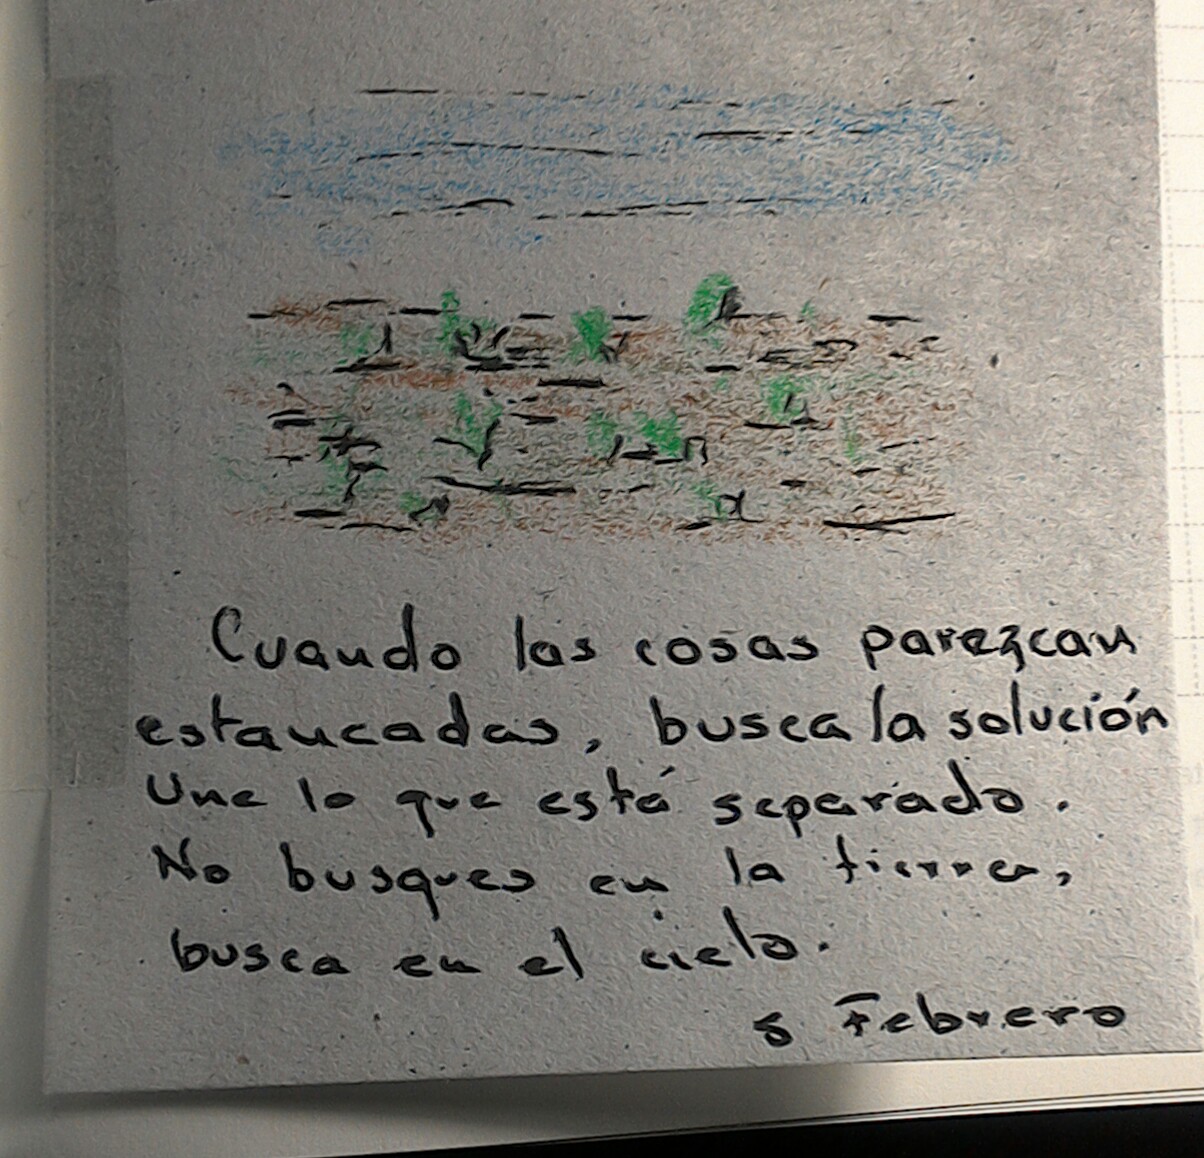 Cuando las cosas parezcan
estancadas, busca la solución
Une lo que está separado.
No busques en la tierra,
busca en el cielo.
5 Febrero